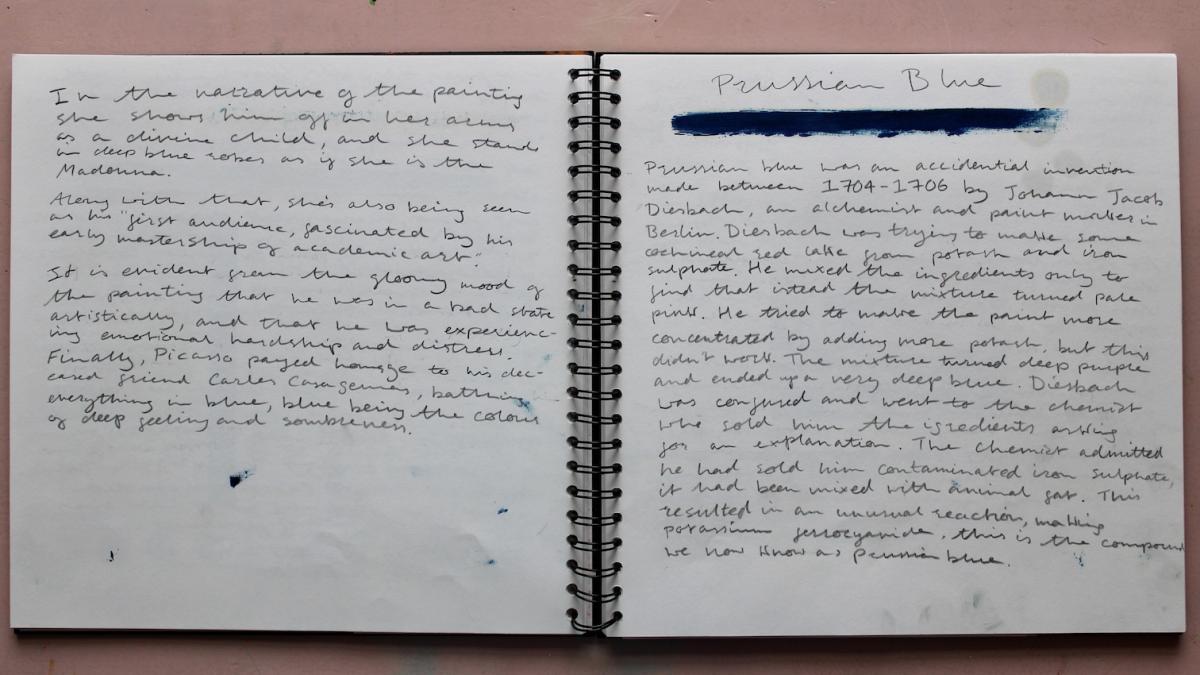 In the narrative of the painting
she shows him off in her arms
as a divine child, and she stands
in deep blue robes as if she is the
Madonna.
Along with that, she's also being seen
as his "first audience, fascinated by his
early mastership of academic art."
It is evident from the gloomy mood of
the painting that he was in a bad state
artistically, and that he was experienc-
ing emotional hardship and distress.
Finally, Picasso payed homage to his dec-
eased friend Carles Casagemas, bathing
everything in blue, blue being the colour
of deep feeling and sombreness.
Prussian Blue
Prussian blue was an accidential invention
made between 1704-1706 by Johann Jacob
Diesbach, an alchemist and paint maker in
Berlin. Diesbach was trying to make some
cochineal red lake from potash and iron
sulphate. He mixed the ingredients only to
find that istead the mixture turned pale
pink. He tried to make the paint more
concentrated by adding more potash, but this
didn't work. The mixture turned deep purple
and ended up a very deep blue. Diesbach
was confused and went to the chemist
who sold him the igredients asking
for an explanation. The chemist admitted
he had sold him contaminated iron sulphate,
it had been mixed with animal fat. This
resulted in an unusual reaction, making
potassium ferrocyanide, this is the compound
we now know as prussian blue.